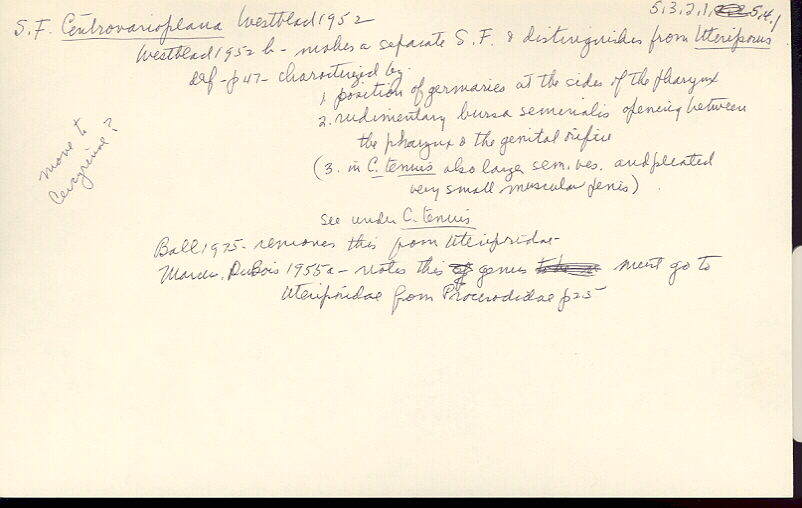 5,3,2,1, 5,4,1
S.F. Centrovarioplana Westblad 1952
Westblad 1952 b - makes a separate S.F. & distinguishes from Uteriporus
def - p 47 - characterized by
1 position of germaries at the sides of the pharynx
2. rudimentary bursa seminalis opening between
the pharynx & the genital orifice
(3. in C. tenuis also large sem. ves. and pleated
very small muscular penis)
move to
Cercyrinae?
see under C. tenuis
Ball 1975 - removes this from Uteriporidae -
Marcus, DuBois 1955a - notes this genus must go to
Uteriporidae from Procerodidae p 25